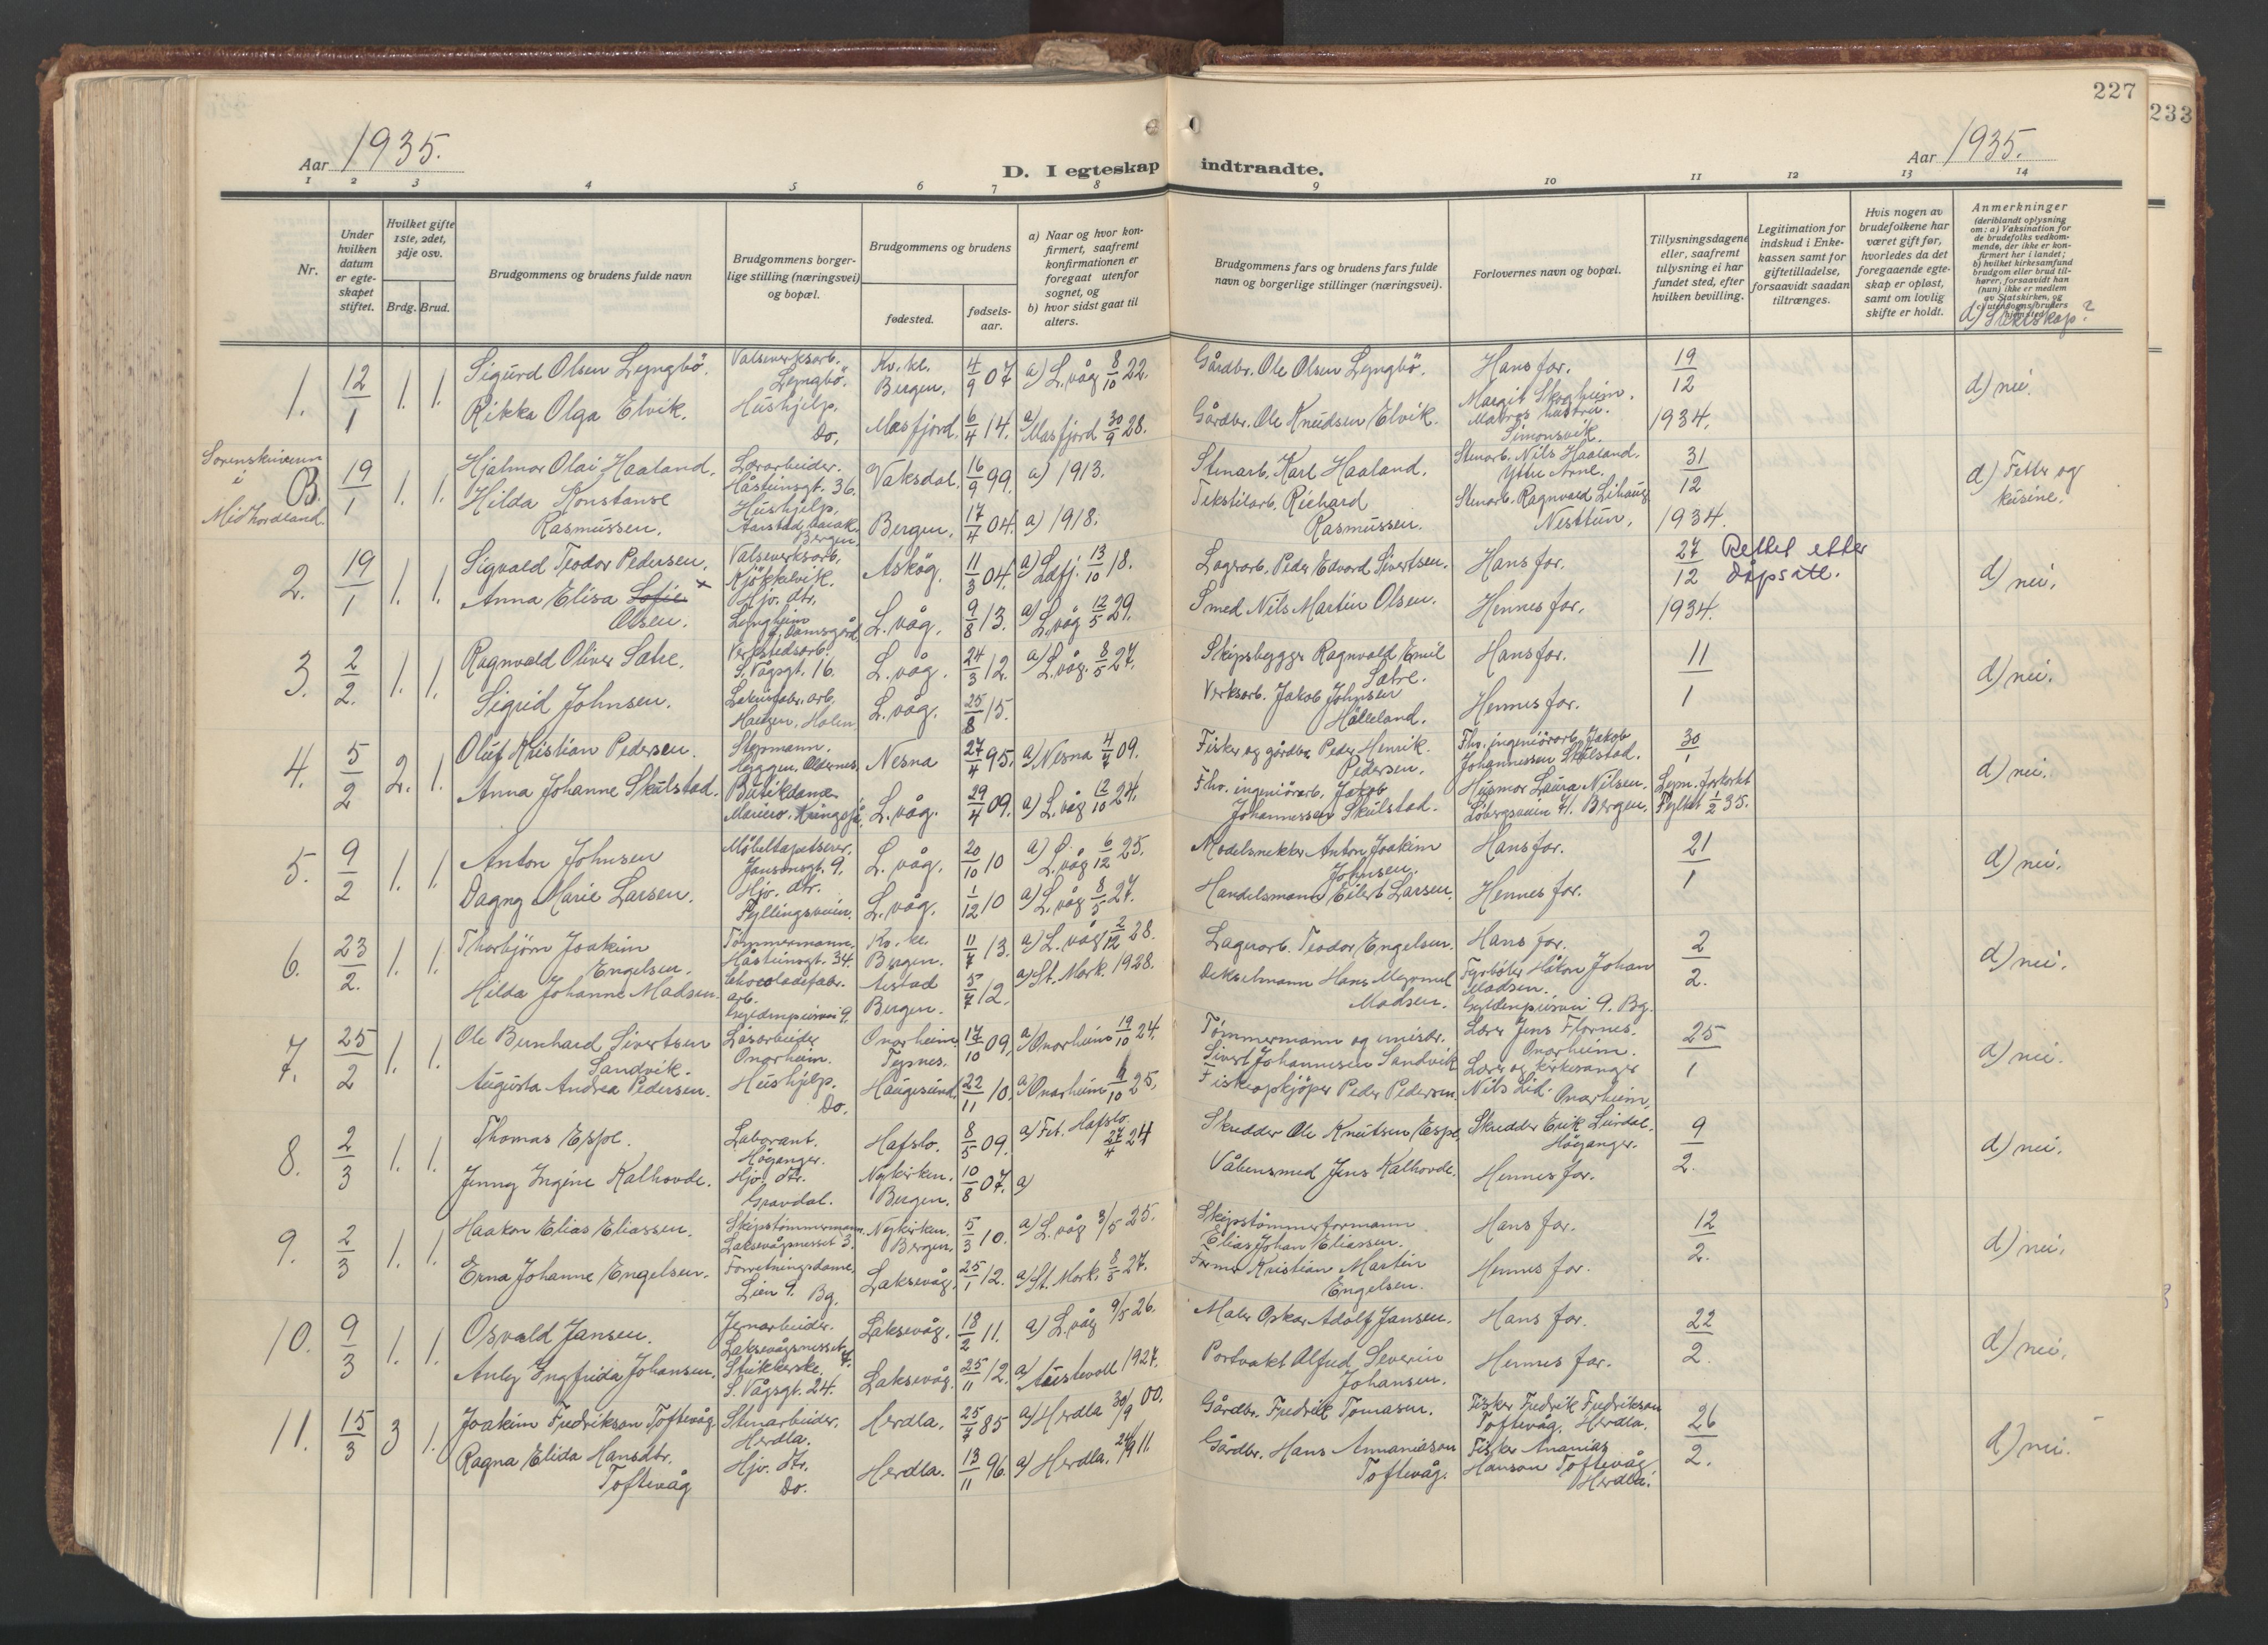 227
233
Aar 1935.
D. I egteskap indtraadte.
Aar 1935.
1 2 3 4 5 6 7 8 9 10 11 12 13 14
Nr.
Under hvilken datum er egte-skapet stiftet.
Hvilket gifte 1ste, 2det, 3dje osv.
Brdg. Brud.
Brudgommens og brudens fulde navn
Brudgommens borger-lige stilling (næringsvei) og bopæl.
Brudgommens og brudens
fødested.
fødsels-aar.
a) Naar og hvor kon-firmert, saafremt konfirmationen er foregaat utenfor sognet, og
b) hvor sidst gaat til alters.
Brudgommens fars og brudens fars fulde navn og borgerlige stillinger (næringsvei).
Forlovernes navn og bopæl.
Tillysningsdagene eller, saafremt tillysning ei har fundet sted, efter hvilken bevilling.
Legitimation for indskud i Enke-kassen samt for giftetilladelse, forsaavidt saadan tiltrænges.
Hvis nogen av brudefolkene har været gift før, hvorledes da det foregaaende egte-skap er opløst, samt om lovlig skifte er holdt.
Anmerkninger
(deriblandt oplysning om: a) Vaksination for de brudefolks vedkom-mende, der ikke er kon-firmert her i landet; b) hvilket kirkesamfund brudgom eller brud til-hører, forsaavidt han (hun) ikke er medlem av Statskirken, og
d) Slektskap?
1. 12/1 1. 1. Sigurd Olsen Lyngbö. Valseverksarb. Lyngbö. Kv. ki. Bergen. 4/9 07 a) L.våg 8/10 22. Gårdbr. Ole Olsen Lyngbö. Hans far. 19/12 1934. d) nei.
Rikka Olga Elvik. Hushjelp. Do. Masfjord. 6/4 14. a) Masfjord 30/9 28. Gårdbr. Ole Knudsen Elvik. Margit Skogheim. Matros hustru. Simonsvik.
Sorenskriveren i Midhordland.
B. 19/1 1. 1. Hjalmar Olai Haaland. Lærarbeider. Håsteinsgt. 36. Vaksdal. 16/9 99. a) 1913. Stenarb. Karl Haaland. Stenarb. Nils Haaland. Ytre Arne. 31/12 1934. d) Fetter og kusine.
Hilda Konstanse Rasmussen. Hushjelp. Bergen. Bergen. 17/4 04. a) 1918. Tekstilarb. Richard Rasmussen. Stenarb. Ragnvald Nesttun.
2. 19/1 1. 1. Sigvald Teodor Pedersen. Valseverksarb. Kjökkelvik. Asköy. 11/3 04. a) Ladfj. 13/10 18. Lagerarb. Peder Edvard Sivertsen. Hans far. 27/12 1934. Rettet etter dåpsatt. d) nei.
Anna Elisa Sofie x Olsen. Hjv. dtr. Lyngheim Damsgård L. våg. 9/8 13. a) L.våg 12/5 29. Smed Nils Martin Olsen. Hennes far.
3. 2/2. 1. 1. Ragnvald Oliver Sætre. Verkstedsarb. S. Vågsgt. 16. L. våg. 24/3 12. a) L.våg. 8/5 27. Skipsbygger Ragnvald Emil Sætre. Hans far. 11/1 d) nei.
Sigrid Johnsen. Holm L. våg. 25/8 15. Verksarb. Jakob Johnsen Hålleland. Hennes far.
4. 5/2 2. 1. Oluf Kristian Pedersen. Stopmann. Nesna 27/4 95. a) Nesna 4/7 09. Fisker og gårdbr. Peder Henrik Pedersen. Fhv. ingeniörarb. Jakob Johannessen Skulstad. 30/1 d) nei.
Anna Johanne Skulstad. Butikdame L. våg. 29/4 09. a) L. våg 12/10 24. Fhv. ingeniörarb. Jakob Johannessen Skulstad. Husmor Laura Nilsen. Bergen. Lysn. forkortet Fylket 1/2 35.
5. 9/2 1. 1. Anton Johnsen Möbeltapetserer. Jansonsgt. 9. L. våg. 20/10 10 a) L. våg 6/12 25. Modelsnekker Anton Joakim Johnsen. Hans far. 21/1 d) nei.
Dagny Marie Larsen. Hjv. dtr. Fyllingsveien. L. våg. 1/12 10 a) L. våg 8/5 27. Handelsmann Eilert Larsen. Hennes far.
6. 23/2. 1. 1. Thorbjörn Joakim Engelsen. Tömmermann. Håsteinsgt. 34. Kv. ki. Bergen. 11/7 13. a) L. våg 2/12 28. Lagerarb. Teodor Engelsen. Hans far. 2/2. d) nei.
Hilda Johanne Madsen. Chocoladefabr. arb. Gyldenprisvei 9. Årstad Bergen. 5/7 12. a) St. Mark. 1928. Dekselmann Hans Madsen. Fyrböter Håkon Johan Madsen. Gyldenprisvei 9. Bg.
7. 25/2 1. 1. Ole Bernhard Sivertsen Sandvik. Lösarbeider Onarheim. Onarheim. Tysnes. 17/10 09. a) Onarheim 19/10 24. Tömmermann og Sivert Johannesen Sandvik Lærer Jens Flornes. Onarheim. 25/1 d) nei.
Augusta Andrea Pedersen. Hushjelp. Do. Haugesund. 22/11 10. a) Onarheim 4/10 25. Fiskeopkjöper Peder Pedersen Lærer og kirkesanger Nils Lid. Onarheim.
8. 2/3 1. 1. Thomas Espe. Laborant. Höyanger. Hafslo. 8/5 09. a) Fet. Hafslo. 27/4 24 Skredder Ole Knutsen Espe. Skredder Erik Lirdal. Höyanger. 9/2. d) nei.
Jenny Ingine Kalhovde. Hjv. dtr. Gravdal. Nykirken. Bergen. 10/8 07. a) Våbensmed Jens Kalhovde. Hennes far.
9. 2/3 1. 1. Haakon Elias Eliassen. Skipstömmermann. Laksevågnesset 3. Nykirken. Bergen. 5/3 10. a) L. våg 3/5 25. Skipstömmerformann Elias Johan Eliassen. Hans far. 12/2. d) nei.
Erna Johanne Engelsen. Forretningsdame. Lien 9. Bg. Laksevåg. 25/1 12. a) St. Mark. 8/5 27. Former Kristian Martin Engelsen. Hennes far.
10. 9/3 1. 1. Osvald Jansen. Jernarbeider. Laksevågnesset 7. Laksevåg. 18/2 11. a) L.våg 9/5 26. Maler Oskar Adolf Jansen. Hans far. 22/2. d) nei.
Ingfrida Johansen. Strikkerske. S. Vågsgt. 24. Laksevåg. 25/11 12. a) Austevoll 1927. Portvakt Alfred Severin Johansen. Hennes far.
11. 15/3 3 1. Joakim Fredrikson Toftevåg Stenarbeider. Herdla. Herdla. 25/7 85 a) Herdla 30/9 00. Gårdbr. Fredrik Tomasen. Fisker Fredrik Fredrikson Toftevåg. Herdla. 26/2. d) nei.
Ragna Elida Hansdtr. Toftevåg Hjv. dtr. Do. Herdla. 13/11 96. a) Herdla. 24/9 11. Gårdbr. Hans Annaniasen Toftevåg. Fisker Ananias Hanson Toftevåg Herdla.